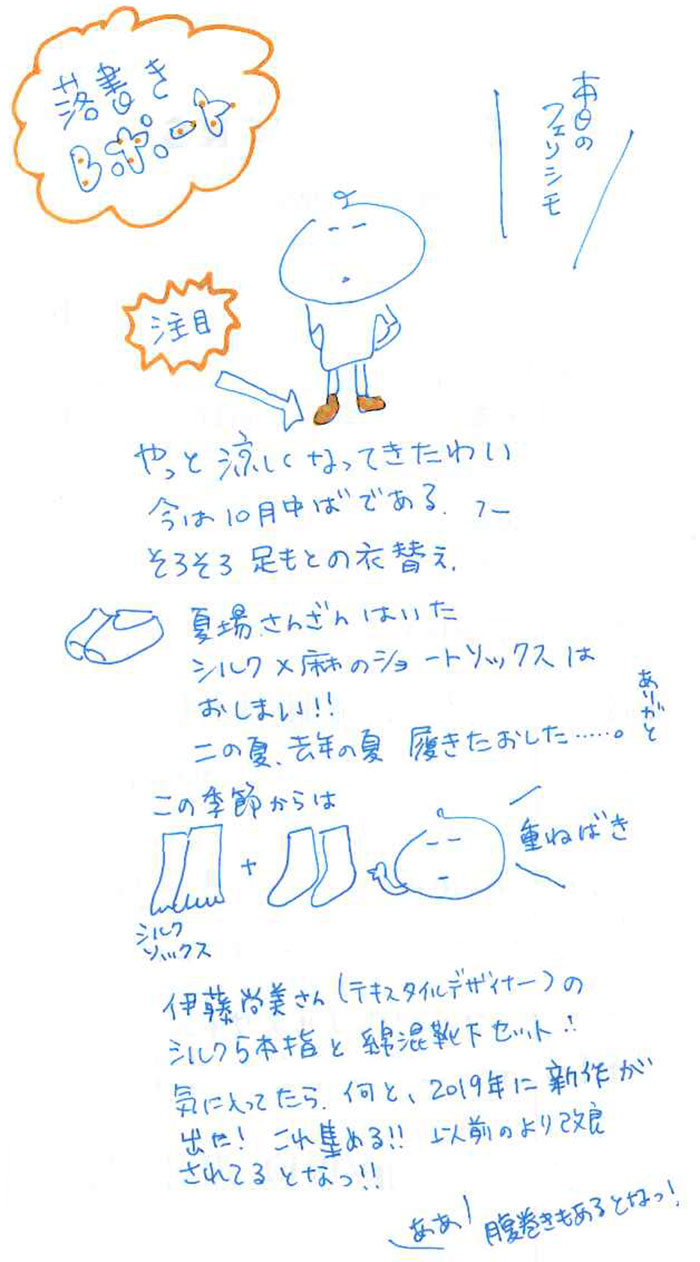 落書き
レポート
本日の
フェリシモ
注目
やっと涼しくなってきたわい
今は10月中ばである。フー
そろそろ足もとの衣替え。
夏場さんざんはいた
シルク×麻のショートソックスは
おしまい!!
この夏、去年の夏 履きたおした……。
ありがと
この季節からは
+
重ねばき
シルク
ソックス
伊藤尚美さん(テキスタイルデザイナー)の
シルク5本指と綿混靴下セット!!
気に入ってたら、何と、2019年に新作が
出た! これ集める!! 以前のより改良
されてるとなっ!!
ああ!
腹巻きもあるとなっ!